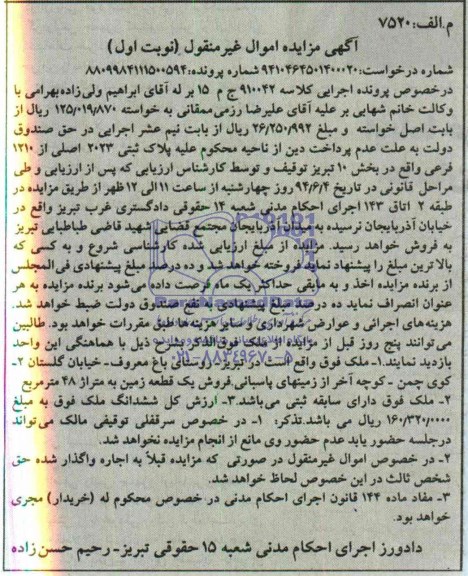 م.الف:۷۵۲۰
آگهی مزایده اموال غیرمنقول (نوبت اول)
شماره درخواست:۹۴۱۰۴۶۴۵۰۱۴۰۰۰۲۰ شماره پرونده:۸۸۰۹۹۸۴۱۱۱۵۰۰۵۹۴
درخصوص پرونده اجرایی کلاسه ۹۱۰۰۴۲ ج م ۱۵ بر له آقای ابراهیم ولی‌زاده‌بهرامی با
وکالت خانم شهابی بر علیه آقای علیرضا رزمی‌ممقانی به خواسته ۱۲۵/۰۱۹/۸۷۰ ریال از
بابت اصل خواسته و مبلغ ۲۶/۲۵۰/۹۹۲ ریال از بابت نیم عشر اجرایی در حق صندوق
دولت به علت عدم پرداخت دین از ناحیه محکوم علیه پلاک ثبتی ۲۰۲۳ اصلی از ۱۲۱۰
فرعی واقع در بخش ۱۰ تبریز توقیف و توسط کارشناس ارزیابی که پس از ارزیابی و طی
مراحل قانونی در تاریخ ۹۴/۶/۴ روز چهارشنبه از ساعت ۱۱ الی ۱۲ ظهر از طریق مزایده در
طبقه ۲ اتاق ۱۴۳ اجرای احکام مدنی شعبه ۱۴ حقوقی دادگستری غرب تبریز واقع در
خیابان آذربایجان نرسیده به میدان آذربایجان مجتمع قضایی شهید قاضی طباطبایی تبریز
به فروش خواهد رسید. مزایده از مبلغ ارزیابی شده کارشناسی شروع و به کسی که
بالاترین مبلغ را پیشنهاد نماید فروخته خواهد شد و ده درصد مبلغ پیشنهادی فی‌المجلس
از برنده مزایده اخذ و به مابقی حداکثر یک ماه فرصت داده می‌شود برنده مزایده به هر
عنوان انصراف نماید ده درصد مبلغ پیشنهادی به نفع صندوق دولت ضبط خواهد شد.
هزینه‌های اجرائی و عوارض شهرداری و سایر هزینه‌ها طبق مقررات خواهد بود. طالبین
می‌توانند پنج روز قبل از مزایده از ملک فوق‌الذکر بشرح ذیل با هماهنگی این واحد
بازدید نمایند.۱- ملک فوق واقع است در تبریز- روستای باغ معروف- خیابان گلستان ۲-
کوی چمن - کوچه آخر از زمینهای پاسبانی.فروش یک قطعه زمین به متراژ ۴۸ مترمربع
۲- ملک فوق دارای سابقه ثبتی می‌باشد.۳- ارزش کل ششدانگ ملک فوق به مبلغ
۱۶۰/۳۲۰/۰۰۰ ریال می باشد.تذکر: ۱- در خصوص سرقفلی توقیفی مالک می‌تواند
درجلسه حضور یابد عدم حضور وی مانع از انجام مزایده نخواهد شد.
۲- در خصوص اموال غیرمنقول در صورتی که مزایده قبلاً به اجاره واگذار شده حق
شخص ثالث در این خصوص لحاظ خواهد شد.
۳- مفاد ماده ۱۴۴ قانون اجرای احکام مدنی در خصوص محکوم له (خریدار) مجری
خواهد بود.
دادورز اجرای احکام مدنی شعبه ۱۵ حقوقی تبریز- رحیم حسن‌زاده
۰۲۱-۸۸۳۴۹۶۷۰-۵